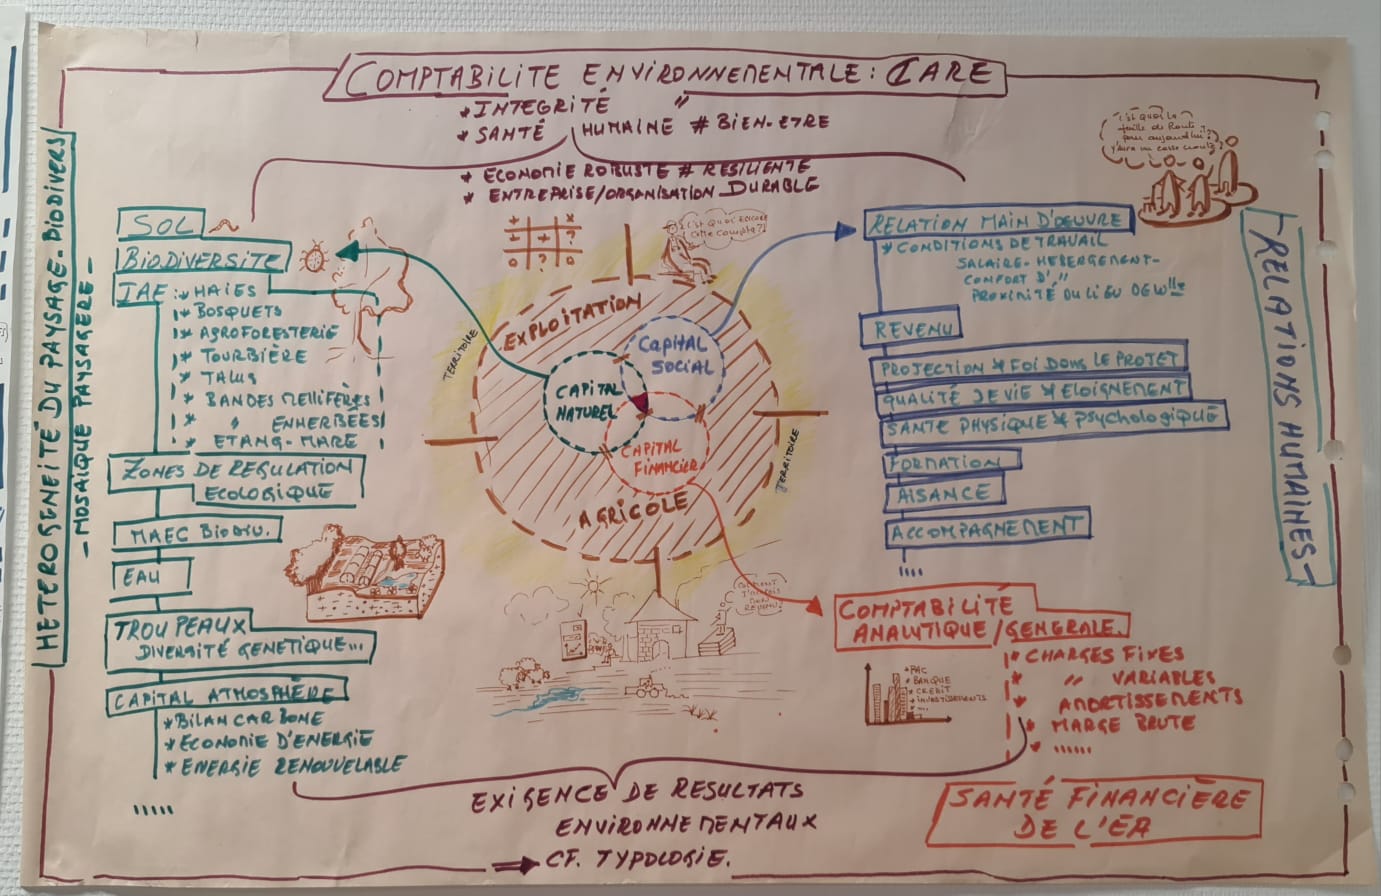 COMPTABILITE ENVIRONNEMENTALE : CARE
* INTEGRITÉ "
* SANTÉ HUMAINE # BIEN-ETRE
* ECONOMIE ROBUSTE # RESILIENTE
* ENTREPRISE/ORGANISATION DURABLE
HETEROGENEITÉ DU PAYSAGE-BIODIVERS
- MOSAÏQUE PAYSAGERE -
SOL
BIODIVERSITE
IAE : * HAIES
* BOSQUETS
* AGROFORESTERIE
* TOURBIÈRE
* TALUS
* BANDES MELLIFÈRES
* " ENHERBÉES
* ETANG-MARE
ZONES DE REGULATION
ECOLOGIQUE
MAEC BIODIV.
EAU
TROUPEAUX
DIVERSITÉ GENETIQUE...
CAPITAL ATMOSPHÈRE
* BILAN CARBONE
* ECONOMIE D'ENERGIE
* ENERGIE RENOUVELABLE
.....
C'EST QUOI ENCORE
cette compta ?!
EXPLOITATION
AGRICOLE
TERRITOIRE
TERRITOIRE
CAPITAL
NATUREL
CAPITAL
SOCIAL
CAPITAL
FINANCIER
c'est quoi la
feuille de Route
pour aujourd'hui ?
RELATION MAIN D'OEUVRE
* CONDITIONS DE TRAVAIL
SALAIRE-HEBERGEMENT-
CONFORT D' "
PROXIMITÉ DU LIEU DE
REVENU
PROJECTION * FOI DANS LE PROJET
QUALITÉ DE VIE * ELOIGNEMENT
SANTE PHYSIQUE * PSYCHOLOGIQUE
FORMATION
AISANCE
ACCOMPAGNEMENT
....
- RELATIONS HUMAINES -
COMPTABILITÉ
ANALYTIQUE/GENERALE.
* CHARGES FIXES
* " VARIABLES
* AMORTISSEMENTS
* MARGE BRUTE
* ......
* PAC
* BANQUE
* CREDIT
* INVESTISSEMENTS
* ...
SANTÉ FINANCIÈRE
DE L'EA
EXIGENCE DE RESULTATS
ENVIRONNEMENTAUX
⇒ CF. TYPOLOGIE.